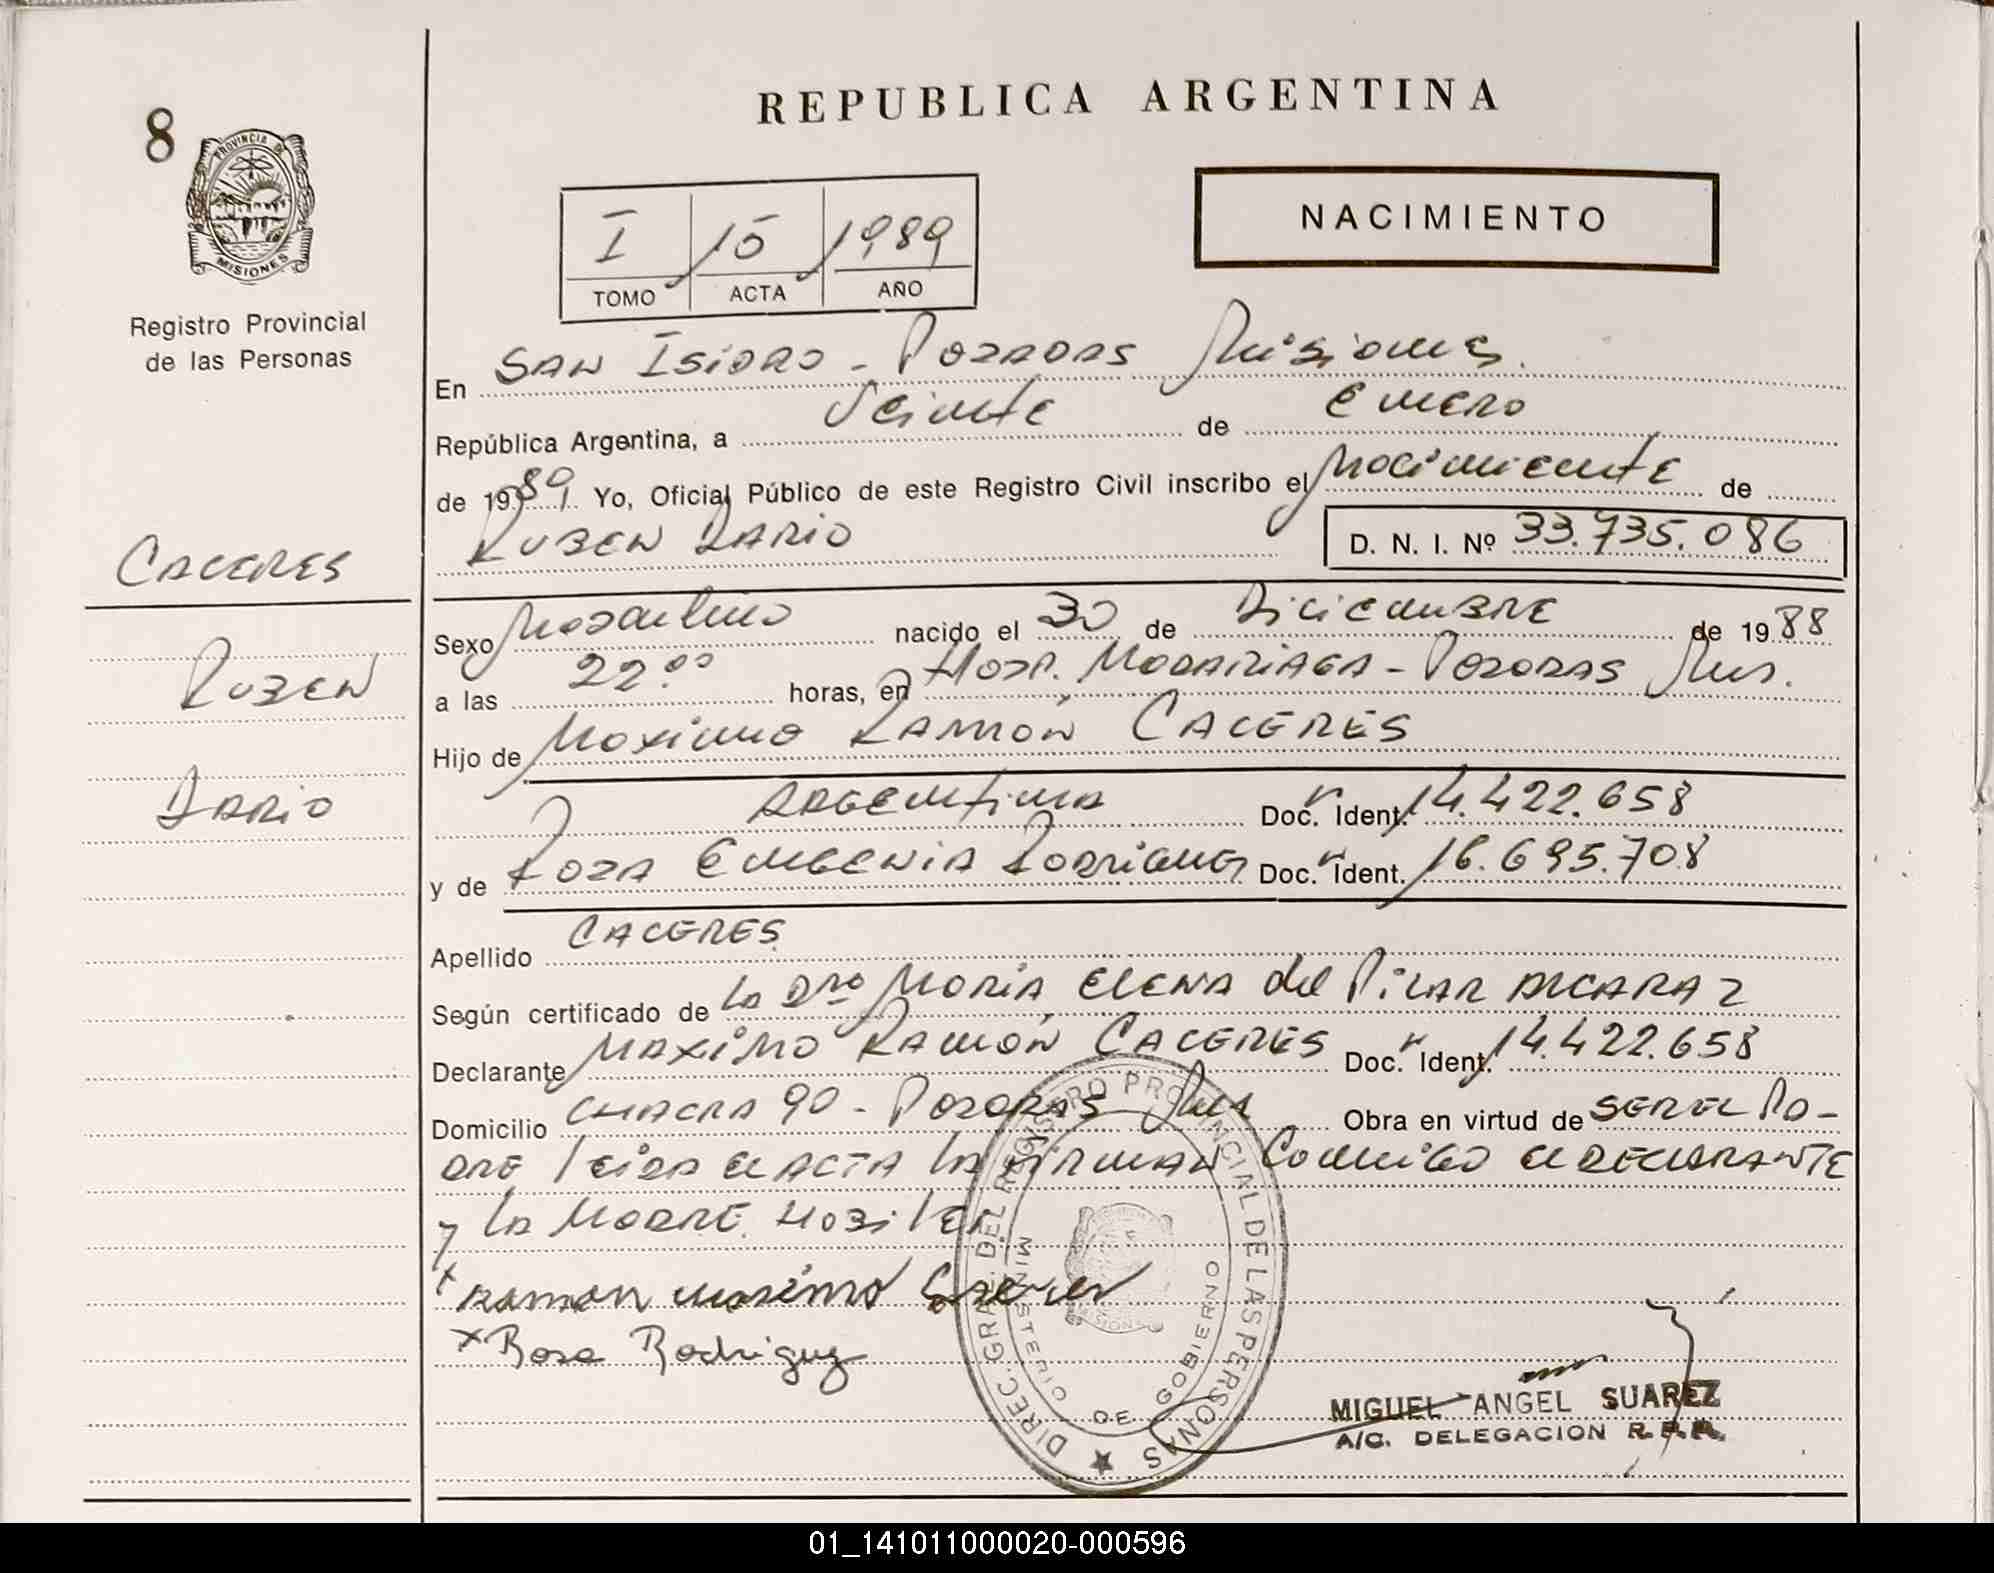 REPUBLICA ARGENTINA
8
PROVINCIA DE
MISIONES
Registro Provincial
de las Personas
NACIMIENTO
I 15 1989
TOMO ACTA AÑO
En SAN ISIDRO - POSADAS Misiones.
República Argentina, a Veinte de ENERO
de 1989. Yo, Oficial Público de este Registro Civil inscribo el Nacimiento de
RUBEN DARIO D. N. I. Nº 33.735.086
CACERES
RUBEN
DARIO
Sexo Masculino nacido el 30 de Diciembre de 1988
a las 22.00 horas, en Hosp. MADARIAGA - POSADAS Mis.
Hijo de Maximo RAMÓN CACERES
ARGENTINA Doc. Ident. 14.422.658
y de ROSA EUGENIA Rodriguez Doc. Ident. 16.695.708
Apellido CACERES
Según certificado de la Dra MARIA ELENA del PILAR ALCARAZ
Declarante MAXIMO RAMÓN CACERES Doc. Ident. 14.422.658
Domicilio CHACRA 90 - POSADAS Mis Obra en virtud de SER EL PA-
DRE leida el ACTA la FIRMAN Conmigo el DECLARANTE
y la MADRE
Ramon maximo Caceres
x Rosa Rodriguez
DIREC. GRAL. DEL REGISTRO PROVINCIAL DE LAS PERSONAS
MINISTERIO DE GOBIERNO
MISIONES
MIGUEL ANGEL SUAREZ
A/C. DELEGACION R.P.P.
01_141011000020-000596